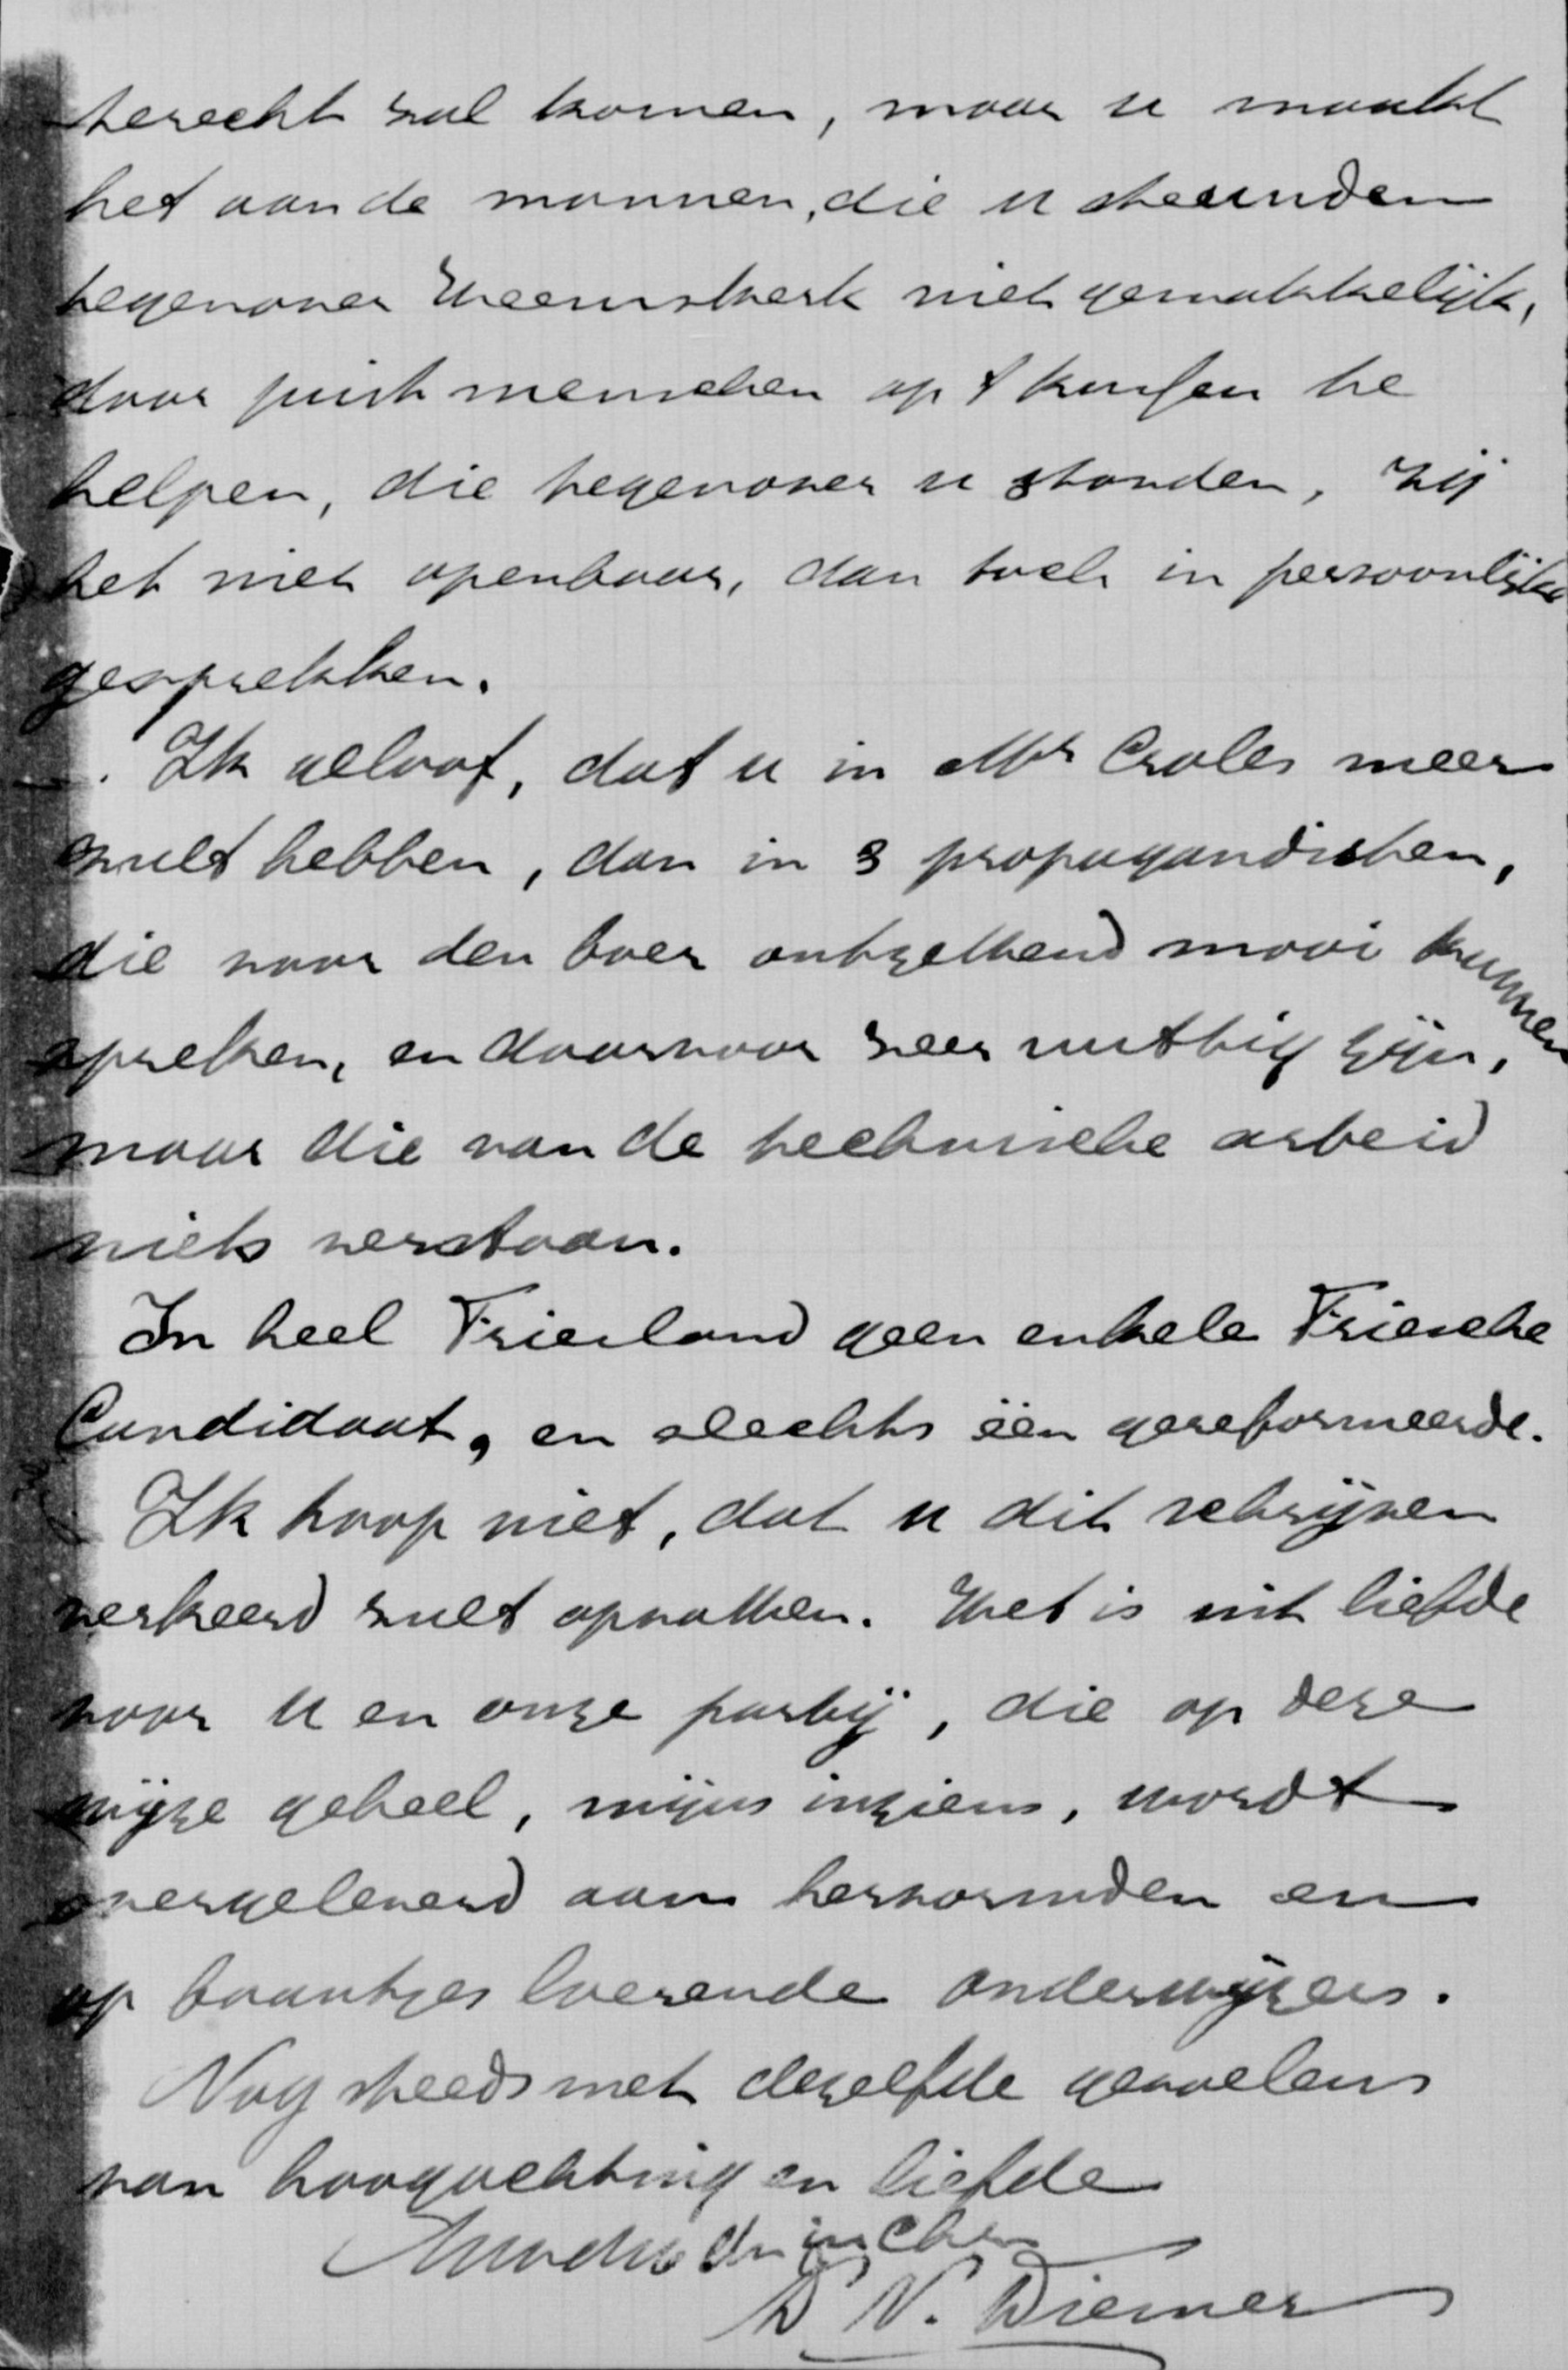 terecht zal komen, maar u maakt
het aan de mannen, die u steunden
tegenover Heemskerk niet gemakkelijk,
door juist menschen op 't kussen te
helpen, die tegenover u stonden, zij
het niet openbaar, dan toch in persoonlijke
gesprekken.
Ik geloof, dat u in Mr Croles meer
zult hebben, dan in 3 propagandisten,
die voor den boer ontzettend mooi kunnen
spreken, en daarvoor zeer nuttig zijn,
maar die van de technische arbeid
niets verstaan.
In heel Friesland geen enkele Friesche
Candidaat, en slechts één gereformeerde.
Ik hoop niet, dat u dit schrijven
verkeerd zult opvatten. Het is uit liefde
voor u en onze partij, die op deze
wijze geheel, mijns inziens, wordt
overgeleverd aan hervormden en
op baantjes loerende onderwijzers.
Nog steeds met dezelfde gevoelens
van hoogachting en liefde
in Chr
N. Diemer